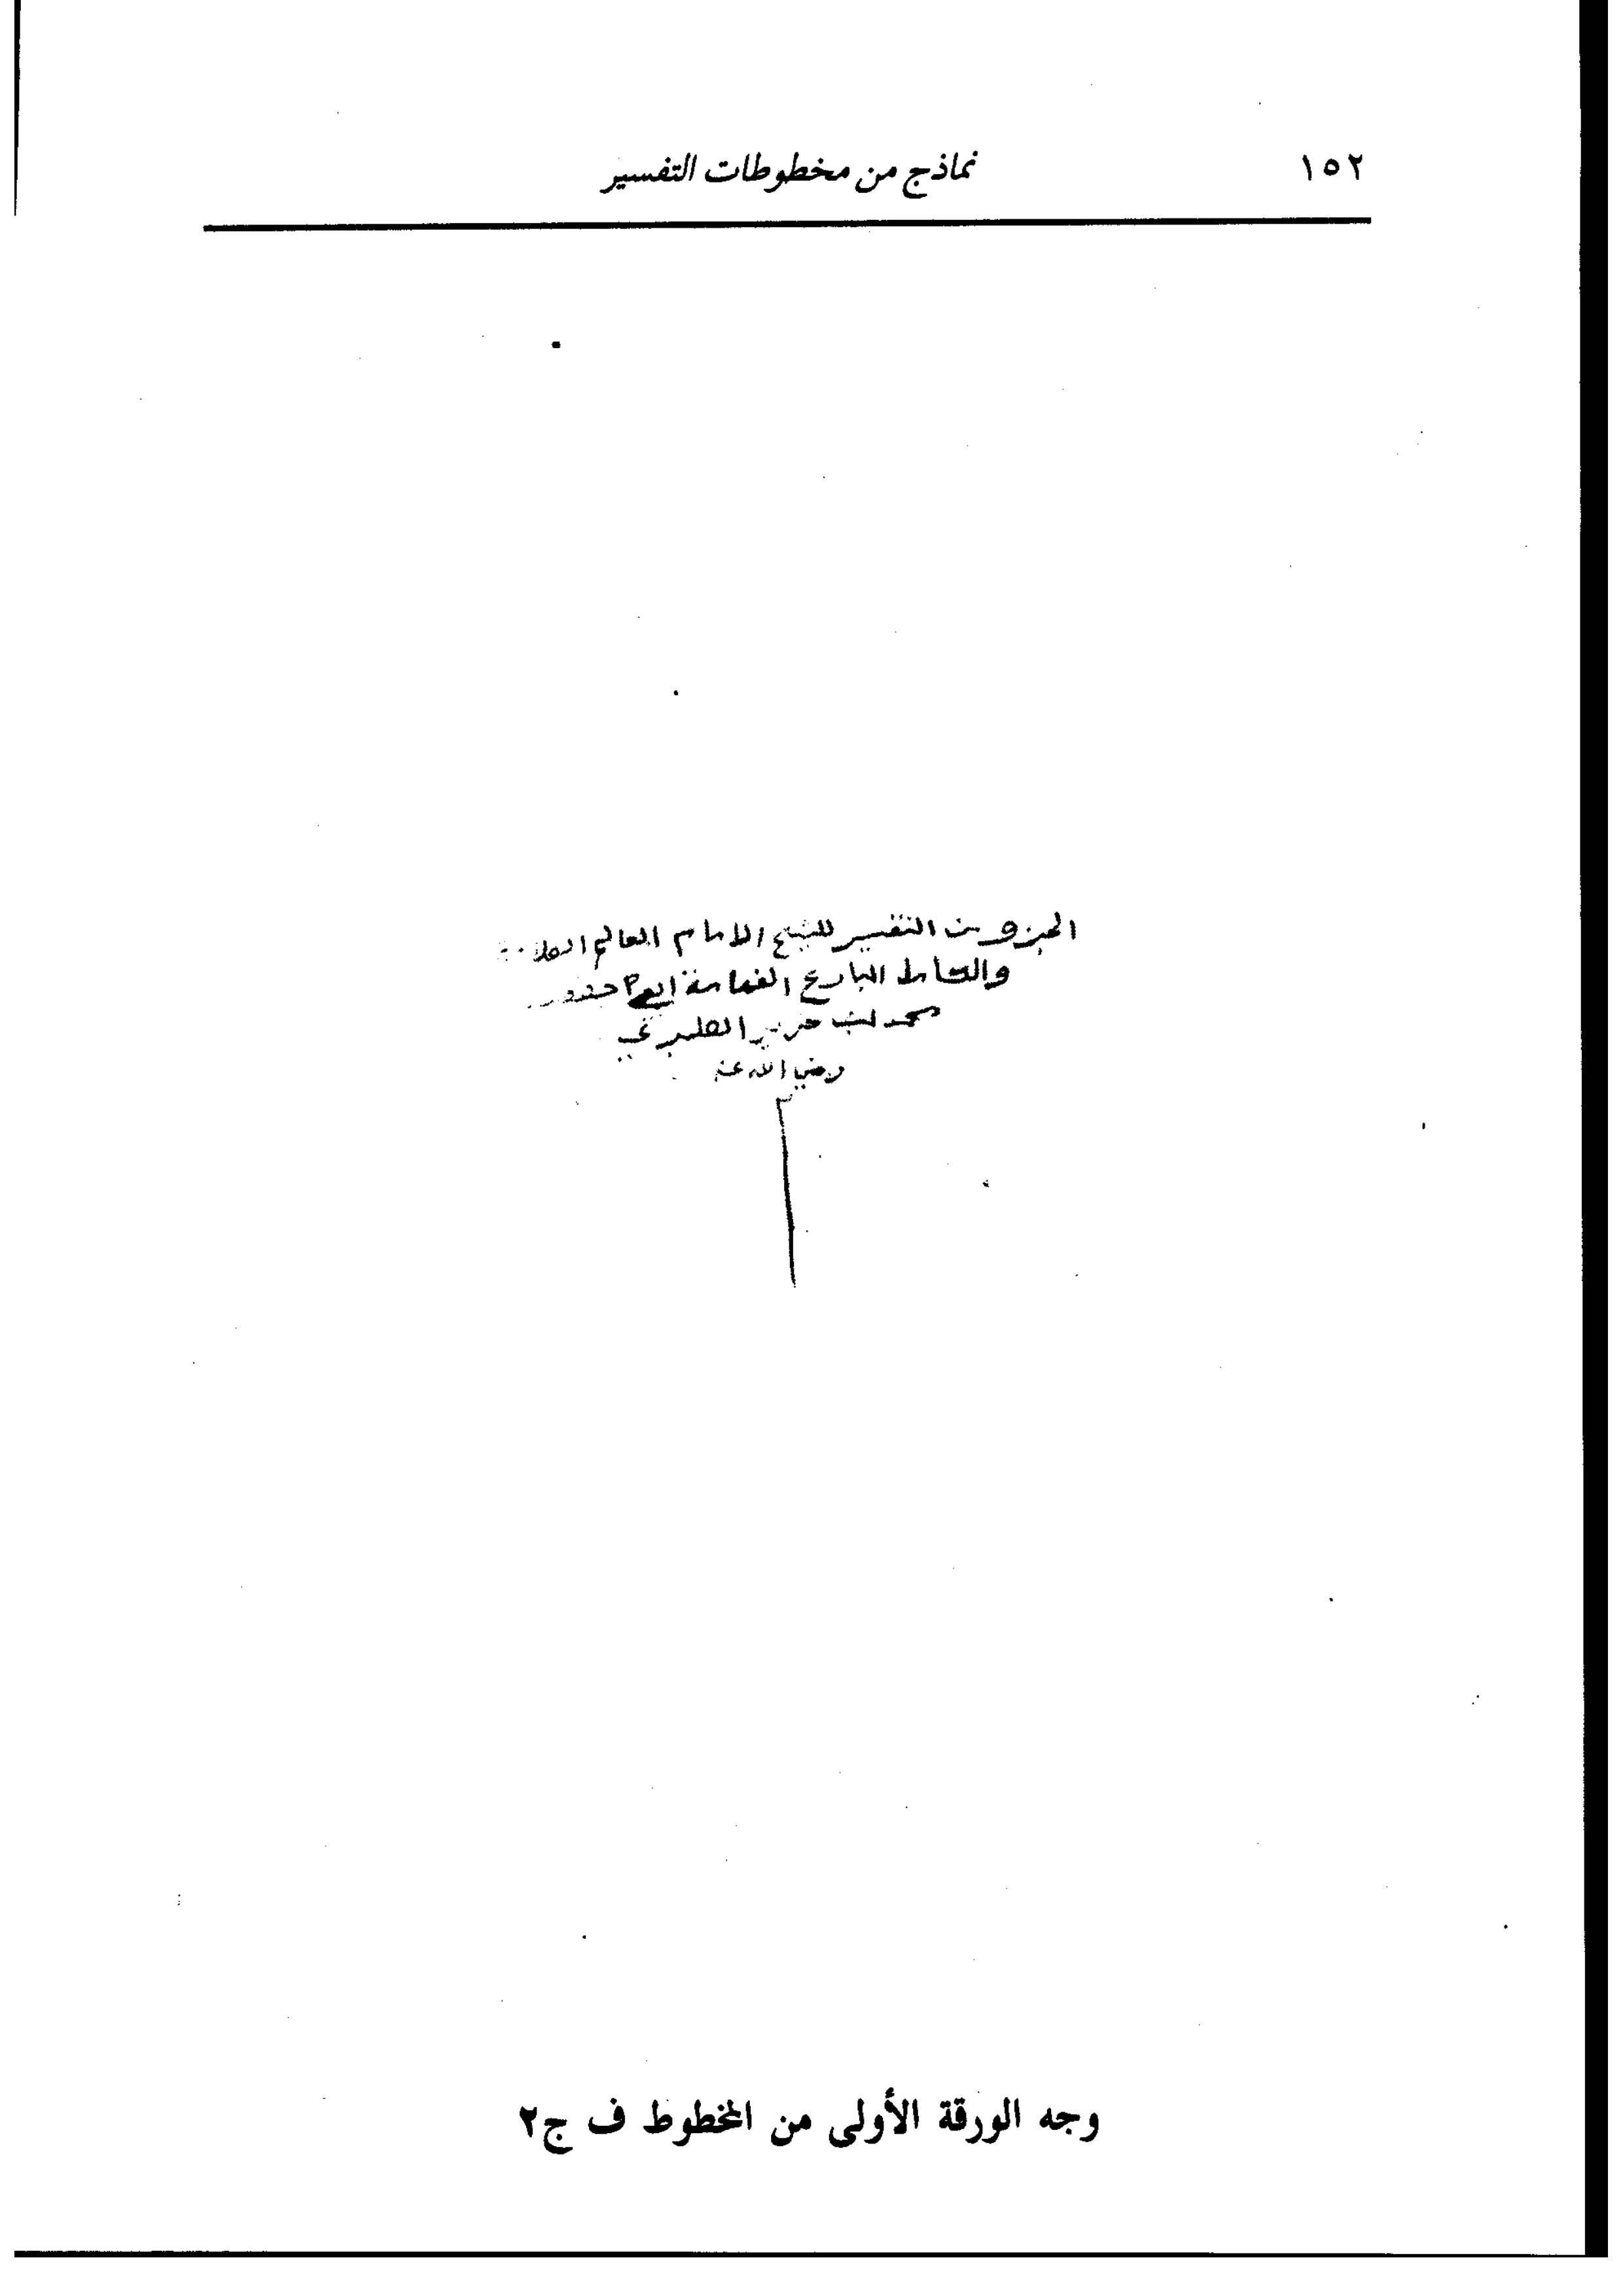 ١٥٢ نماذج من مخطوطات التفسير
الجزو من التفسير للشيخ الامام العالم العلامة
البارع الفهامة ابي
محمد ابن جرير الطبري
رضي الله عنه
وجه الورقة الأولى من المخطوط ف ج٢